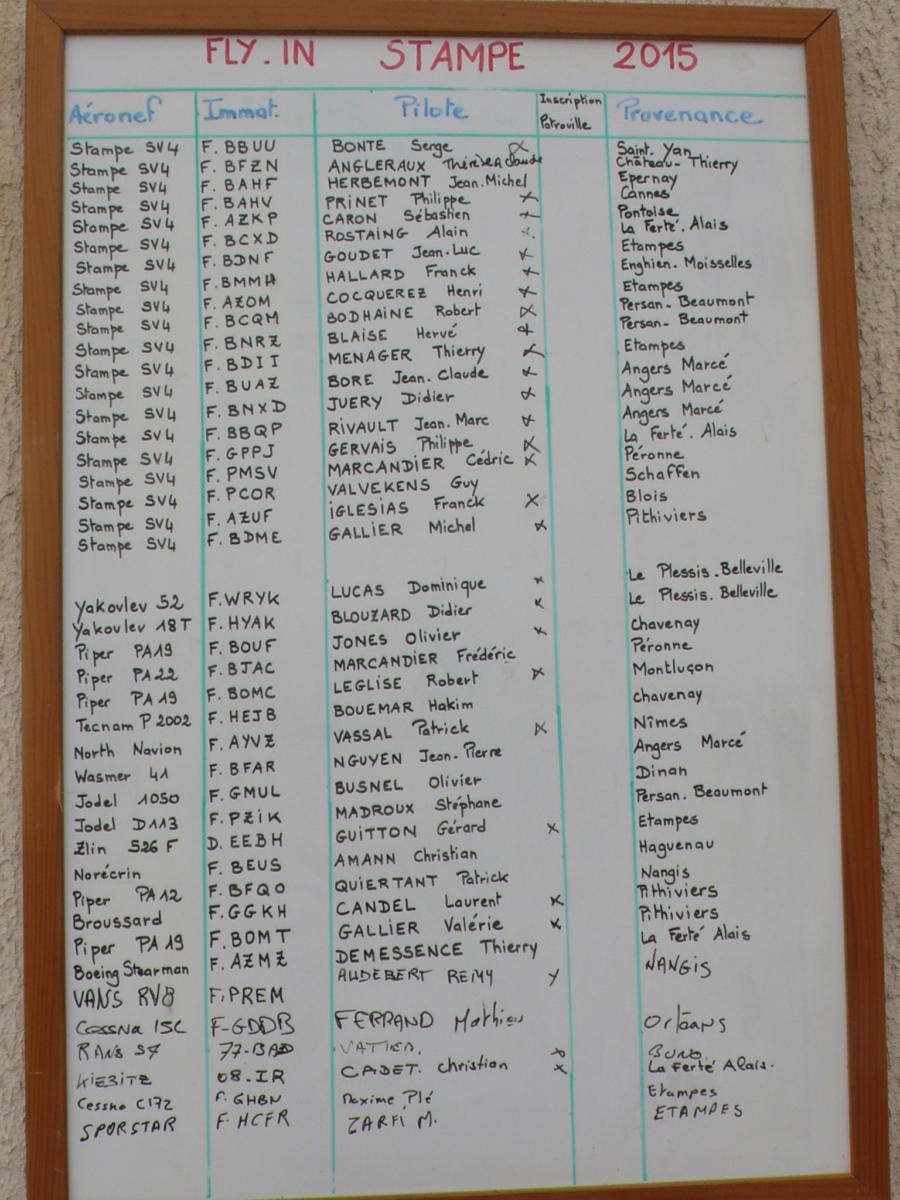 FLY.IN STAMPE 2015
Aéronef Immat. Pilote Inscription Patrouille Provenance
Stampe SV4 F.BBUU BONTE Serge x Saint.Yan
Stampe SV4 F.BFZN ANGLERAUX Thérèse & Claude Château-Thierry
Stampe SV4 F.BAHF HERBEMONT Jean.Michel Epernay
Stampe SV4 F.BAHV PRINET Philippe x Cannes
Stampe SV4 F.AZKP CARON Sébastien x Pontoise
Stampe SV4 F.BCXD ROSTAING Alain x La Ferté.Alais
Stampe SV4 F.BDNF GOUDET Jean.Luc x Etampes
Stampe SV4 F.BMMH HALLARD Franck x Enghien.Moisselles
Stampe SV4 F.AZOM COCQUEREZ Henri x Etampes
Stampe SV4 F.BCQM BODHAINE Robert x Persan-Beaumont
Stampe SV4 F.BNRZ BLAISE Hervé x Persan-Beaumont
Stampe SV4 F.BDII MENAGER Thierry x Etampes
Stampe SV4 F.BUAZ BORE Jean.Claude x Angers Marcé
Stampe SV4 F.BNXD JUERY Didier x Angers Marcé
Stampe SV4 F.BBQP RIVAULT Jean.Marc x Angers Marcé
Stampe SV4 F.GPPJ GERVAIS Philippe x La Ferté.Alais
Stampe SV4 F.PMSV MARCANDIER Cédric x Péronne
Stampe SV4 F.PCOR VALVEKENS Guy Schaffen
Stampe SV4 F.AZUF IGLESIAS Franck x Blois
Stampe SV4 F.BDME GALLIER Michel x Pithiviers
Yakovlev 52 F.WRYK LUCAS Dominique x Le Plessis.Belleville
Yakovlev 18T F.HYAK BLOUZARD Didier x Le Plessis.Belleville
Piper PA19 F.BOUF JONES Olivier x Chavenay
Piper PA22 F.BJAC MARCANDIER Frédéric Péronne
Piper PA19 F.BOMC LEGLISE Robert x Montluçon
Tecnam P2002 F.HEJB BOUEMAR Hakim Chavenay
North Navion F.AYVZ VASSAL Patrick x Nîmes
Wasmer 41 F.BFAR NGUYEN Jean-Pierre Angers Marcé
Jodel 1050 F.GMUL BUSNEL Olivier Dinan
Jodel D113 F.PZIK MADROUX Stéphane Persan.Beaumont
Zlin 526 F D.EEBH GUITTON Gérard x Etampes
Norécrin F.BEUS AMANN Christian Haguenau
Piper PA12 F.BFQO QUIERTANT Patrick Nangis
Broussard F.GGKH CANDEL Laurent x Pithiviers
Piper PA19 F.BOMT GALLIER Valérie x Pithiviers
Boeing Stearman F.AZMZ DEMESSENCE Thierry La Ferté Alais
VANS RV8 F.PREM AUDEBERT REMY x NANGIS
Cessna 15C F-GDDB FERRAND Mathieu Orléans
RANS S7 77-BAD VATIER. x BUNO.
KIEBITZ 08.IR CADET. christian x La Ferté Alais.
Cessna C172 F.GHBN Maxime Plé Etampes
SPORSTAR F.HCFR ZARFI M. ETAMPES